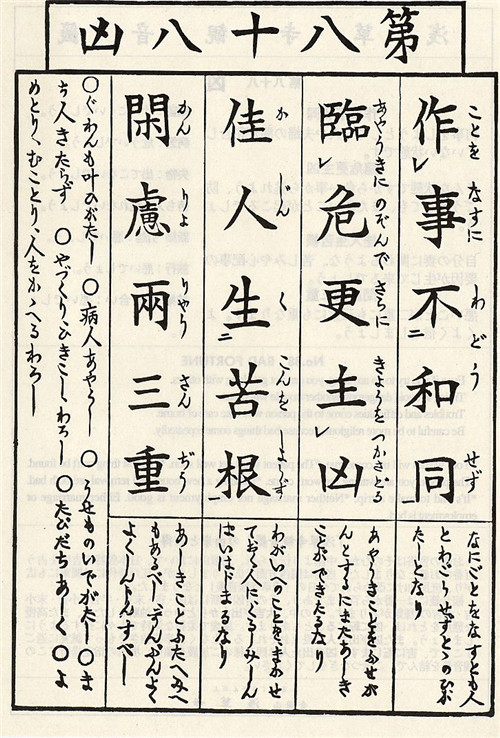 第八十八凶
作レ事不二和同一
ことを なすに わどう せず
なにごとをなすとも人
とわごうせずとゝのひが
たしとなり
臨レ危更主レ凶
あやうきにのぞんでさらに
あやうきことをふせが
んとするにまたあしき
佳人生二苦根一
かじん くこんを しょうず
わがいへのことをまかせ
閑慮兩三重
かんりよりやうさんぢう
あしきことふたへみへ
もあるべしずいぶんよく
よくしんじんすべし
〇ぐわんも叶ひがたし 〇病人あやうし 〇うせものいでがたし 〇ま
ち人きたらず 〇やづくりひきこしわろし 〇たびだちあしく 〇よ
めとり、むことり、人をかゝへるわろし